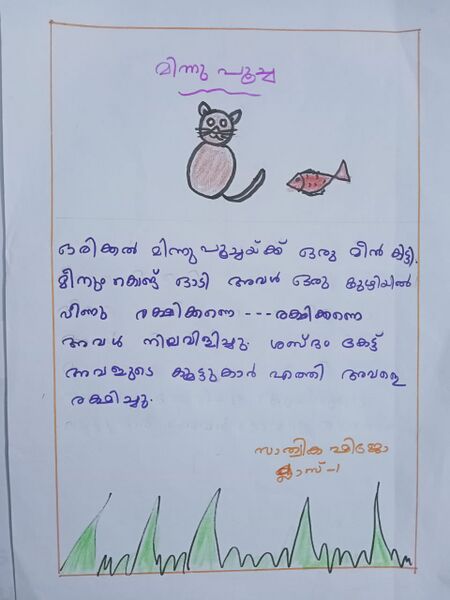 മിന്നു പൂച്ച
ഒരിക്കൽ മിന്നു പൂച്ചയ്ക്ക് ഒരു മീൻ കിട്ടി.
മീനും കൊണ്ട് ഓടി അവൾ ഒരു കുഴിയിൽ
വീണു രക്ഷിക്കണെ ---രക്ഷിക്കണെ
അവൾ നിലവിളിച്ചു. ശബ്ദം കേട്ട്
അവളുടെ കൂട്ടുകാർ എത്തി അവളെ
രക്ഷിച്ചു.
സാത്വിക ഷിജോ
ക്ലാസ്-1